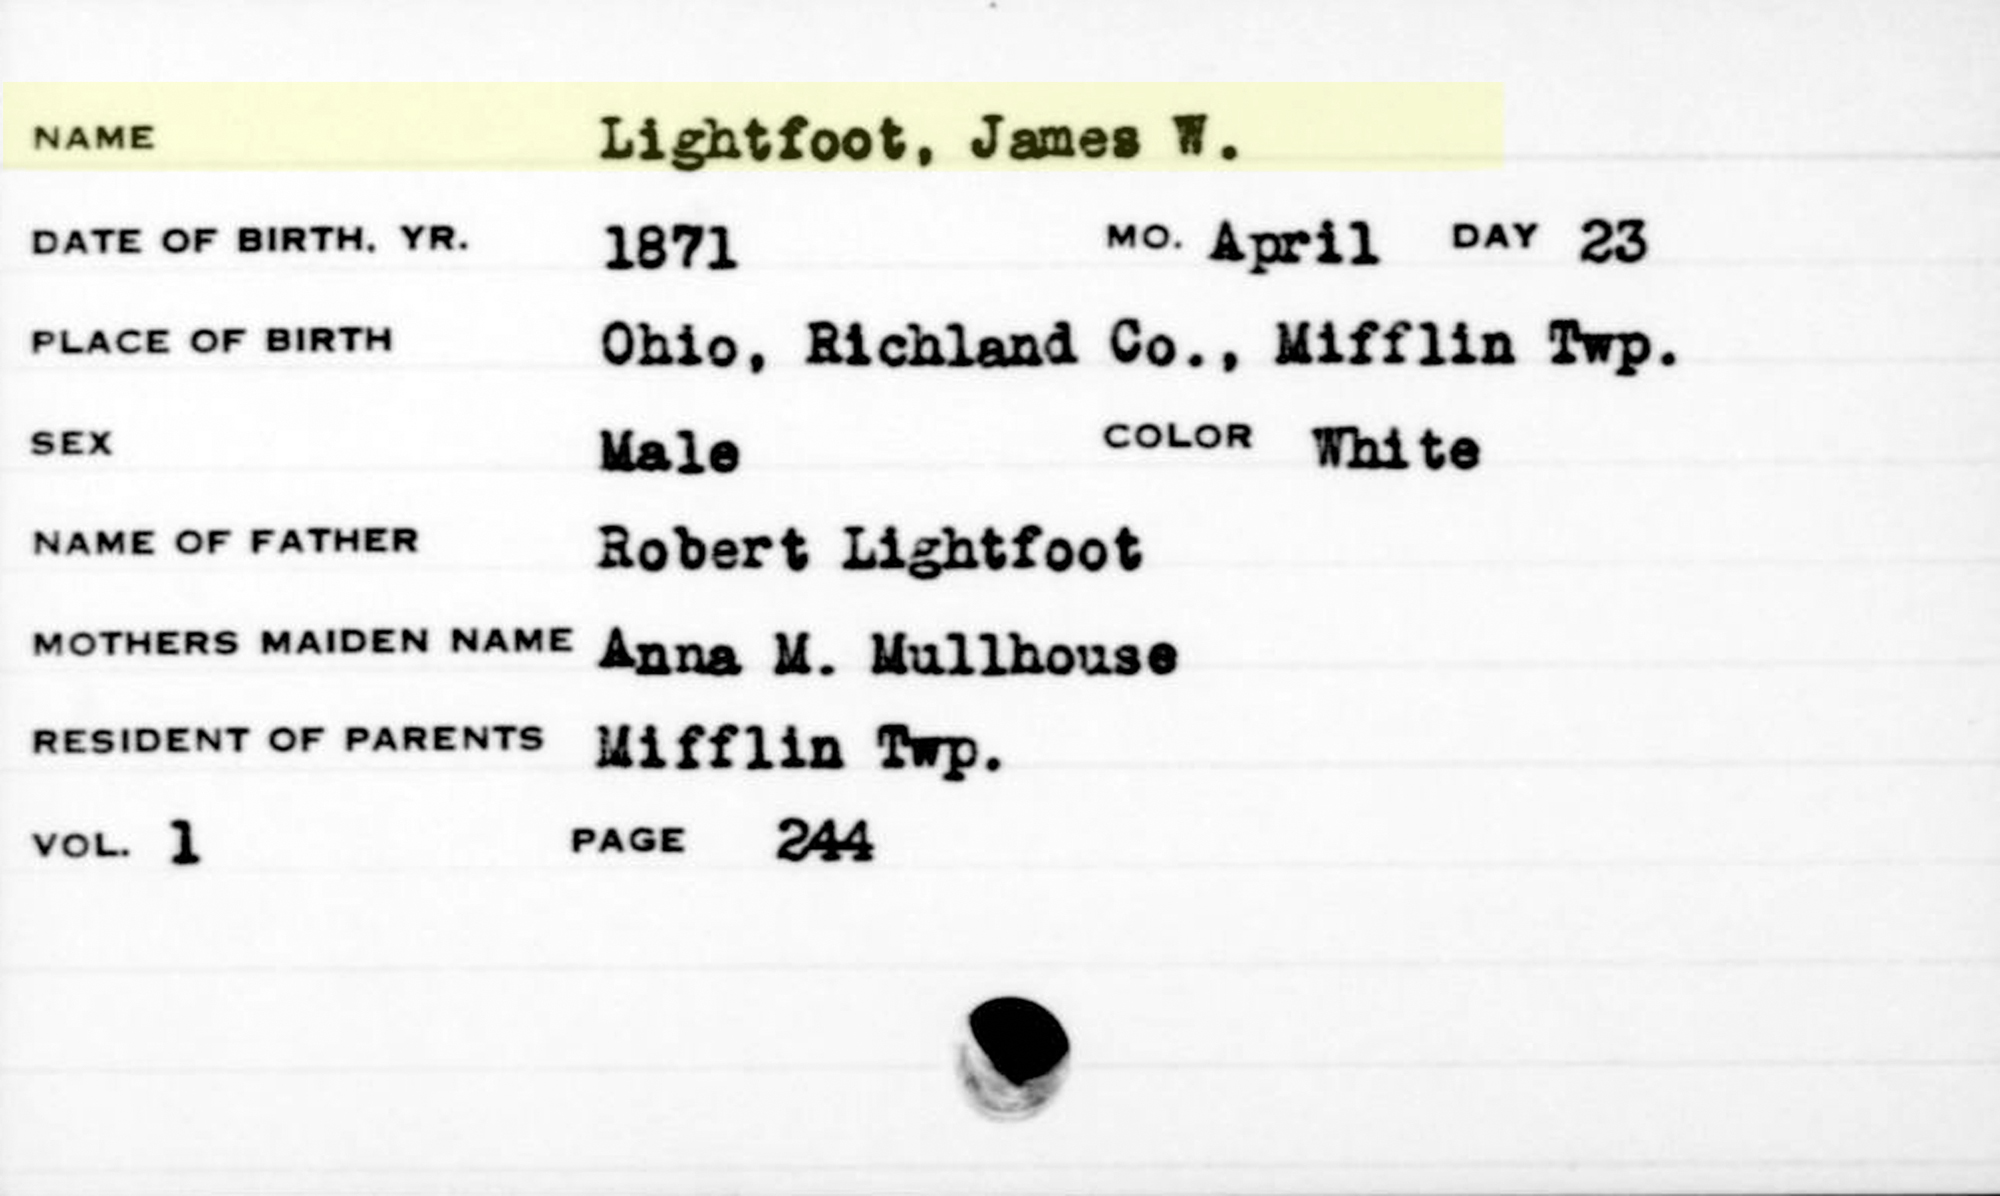 NAME Lightfoot, James W.
DATE OF BIRTH. YR. 1871 MO. April DAY 23
PLACE OF BIRTH Ohio, Richland Co., Mifflin Twp.
SEX Male COLOR White
NAME OF FATHER Robert Lightfoot
MOTHERS MAIDEN NAME Anna M. Mullhouse
RESIDENT OF PARENTS Mifflin Twp.
VOL. 1 PAGE 244